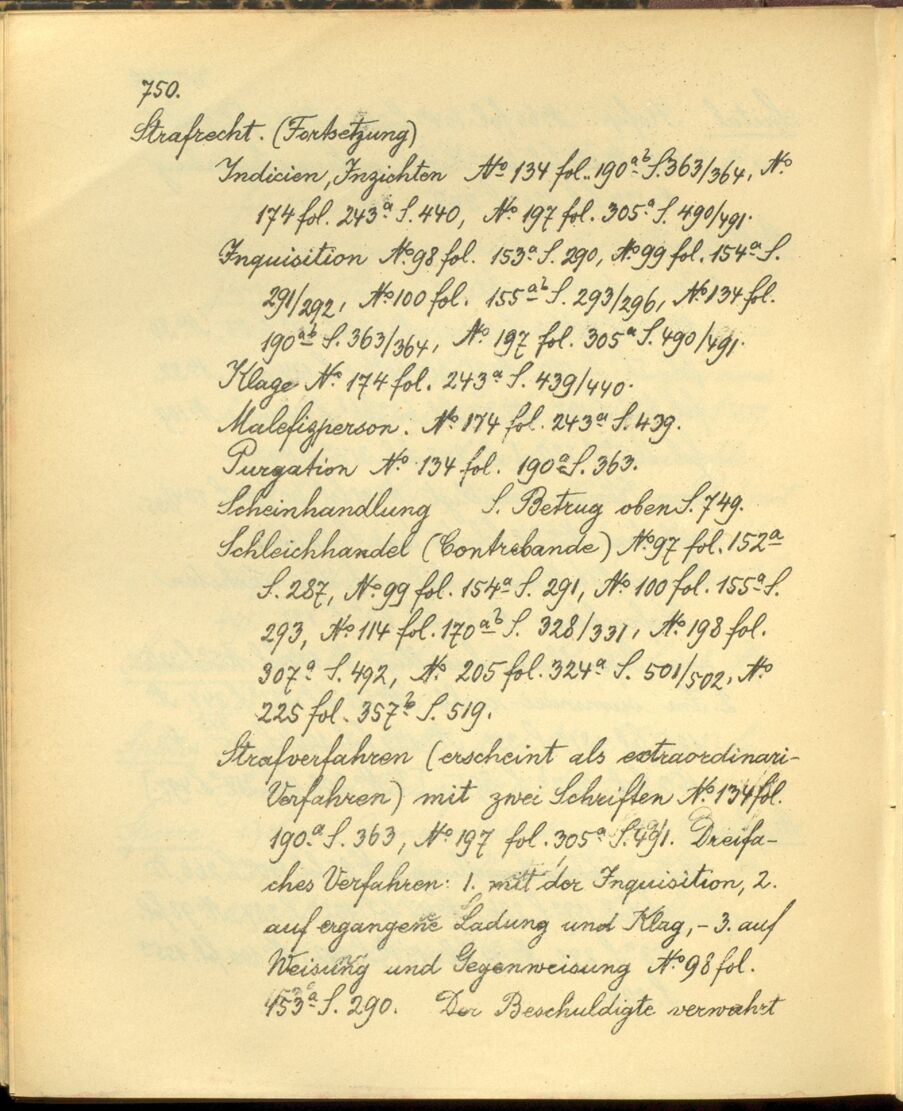 750.
Strafrecht. (Fortsetzung)
Indicien, Inzichten No 134 fol. 190ab S. 363/364, No
174 fol. 243a S. 440, No 197 fol. 305a S. 490/491.
Inquisition No 98 fol. 153a S. 290, No 99 fol. 154a S.
291/292, No 100 fol. 155ab S. 293/296, No 134 fol.
190ab S. 363/364, No 197 fol. 305a S. 490/491.
Klage No 174 fol. 243a S. 439/440.
Malefizperson. No 174 fol. 243a S. 439.
Purgation No 134 fol. 190a S. 363.
Scheinhandlung S. Betrug oben S. 749.
Schleichhandel (Contrebande) No 97 fol. 152a
S. 287, No 99 fol. 154a S. 291, No 100 fol. 155a S.
293, No 114 fol. 170ab S. 328/331, No 198 fol.
307a S. 492, No 205 fol. 324a S. 501/502, No
225 fol. 357b S. 519.
Strafverfahren (erscheint als extraordinari-
Verfahren) mit zwei Schriften No 134 fol.
190a S. 363, No 197 fol. 305a S. 491. Dreifa-
ches Verfahren: 1. mit der Inquisition, 2.
auf ergangene Ladung und Klag, - 3. auf
Weisung und Gegenweisung No 98 fol.
153a S. 290. Der Beschuldigte verwahrt